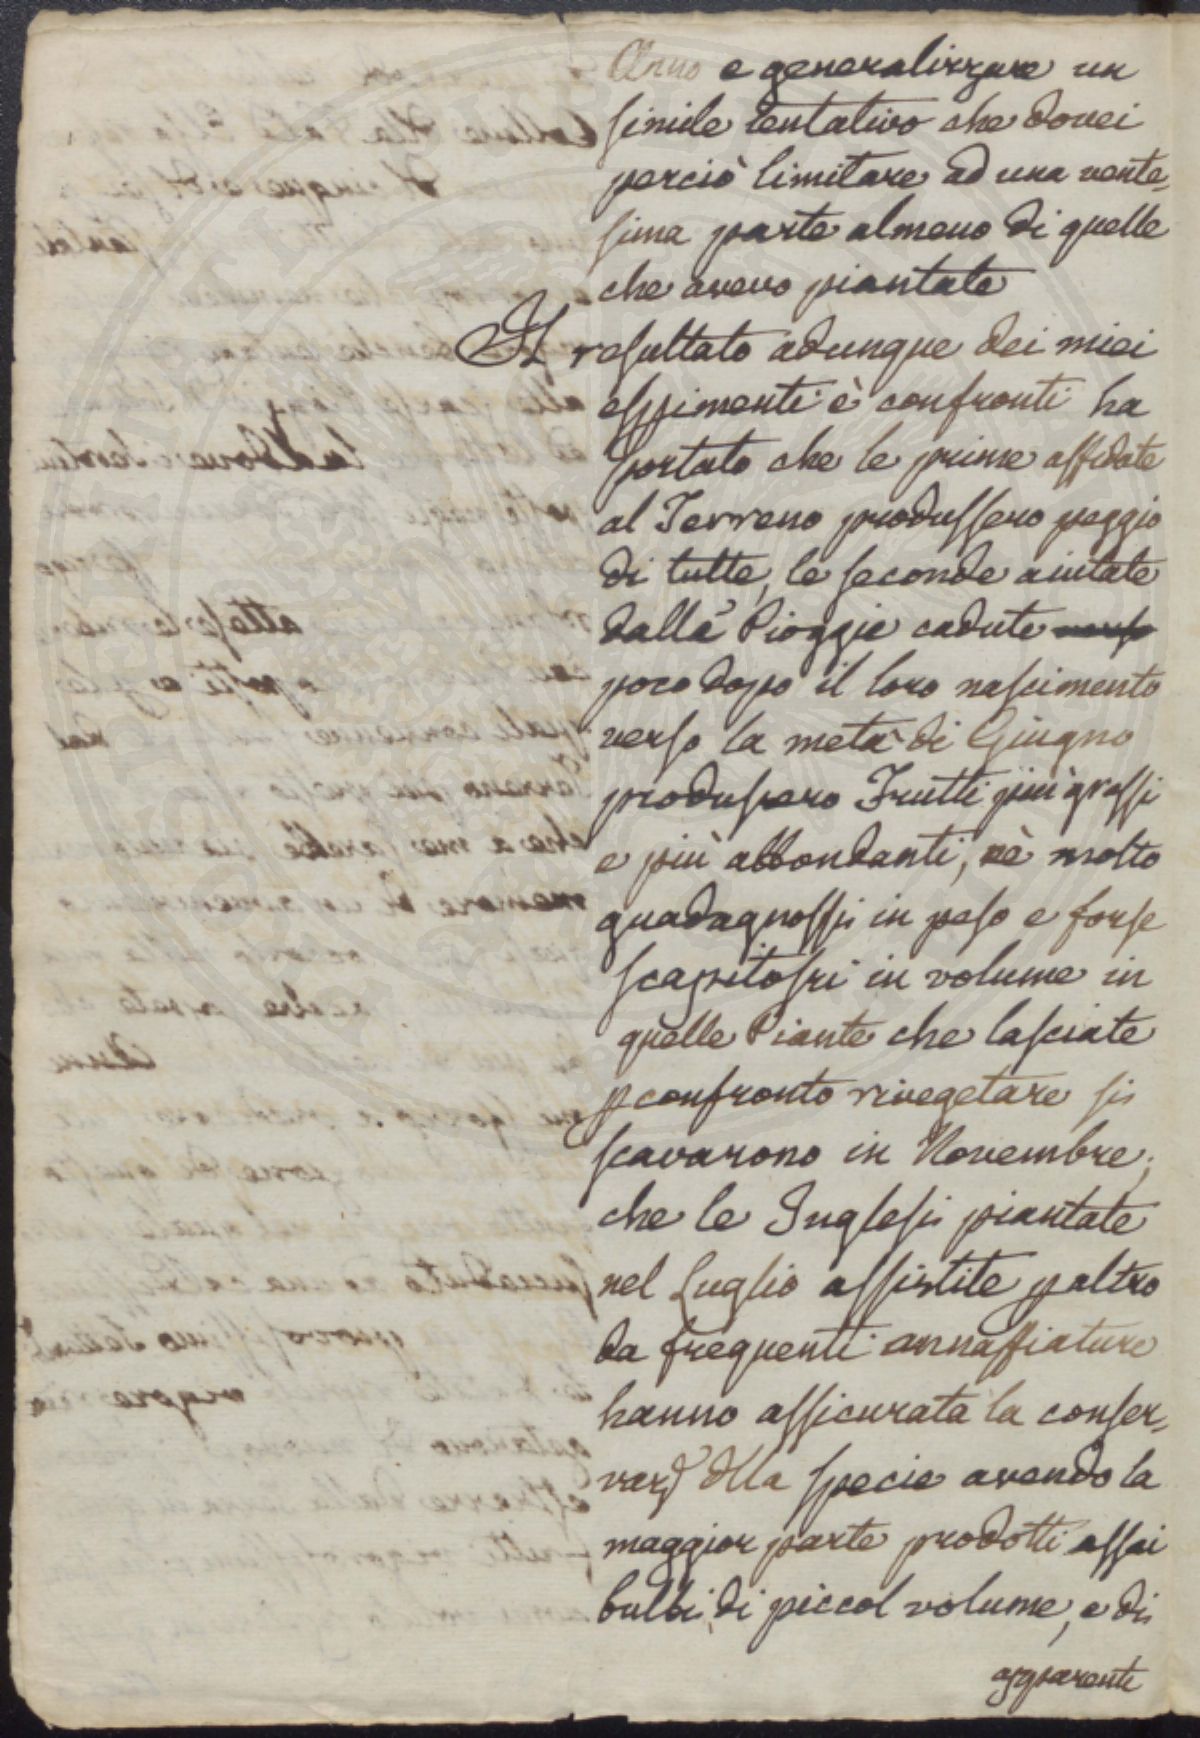 Anno e generalizzare un
simile tentativo che dovei
perciò limitare ad una vente„
sima parte almeno di quelle
che avevo piantate
Il resultato adunque dei miei
esppimenti è confronti ha
portato che le prime affidate
al Terreno produssero peggio
di tutte, le seconde aiutate
dalle Pioggie cadute verso
poco dopo il loro nascimento
verso la metà di Giugno
produssero Frutti più grossi
e più abbondanti, nè molto
guadagnossi in peso e forse
scapitossi in volume in
quelle Piante che lasciate
p confronto rivegetare si
scavarono in Novembre;
che le Inglesi piantate
nel Luglio assistite p altro
da frequenti annaffiature
hanno assicurata la conser„
vaz.e dlla specie avendo la
maggior parte prodotti assai
bulbi, di piccol volume, e di
apparenti